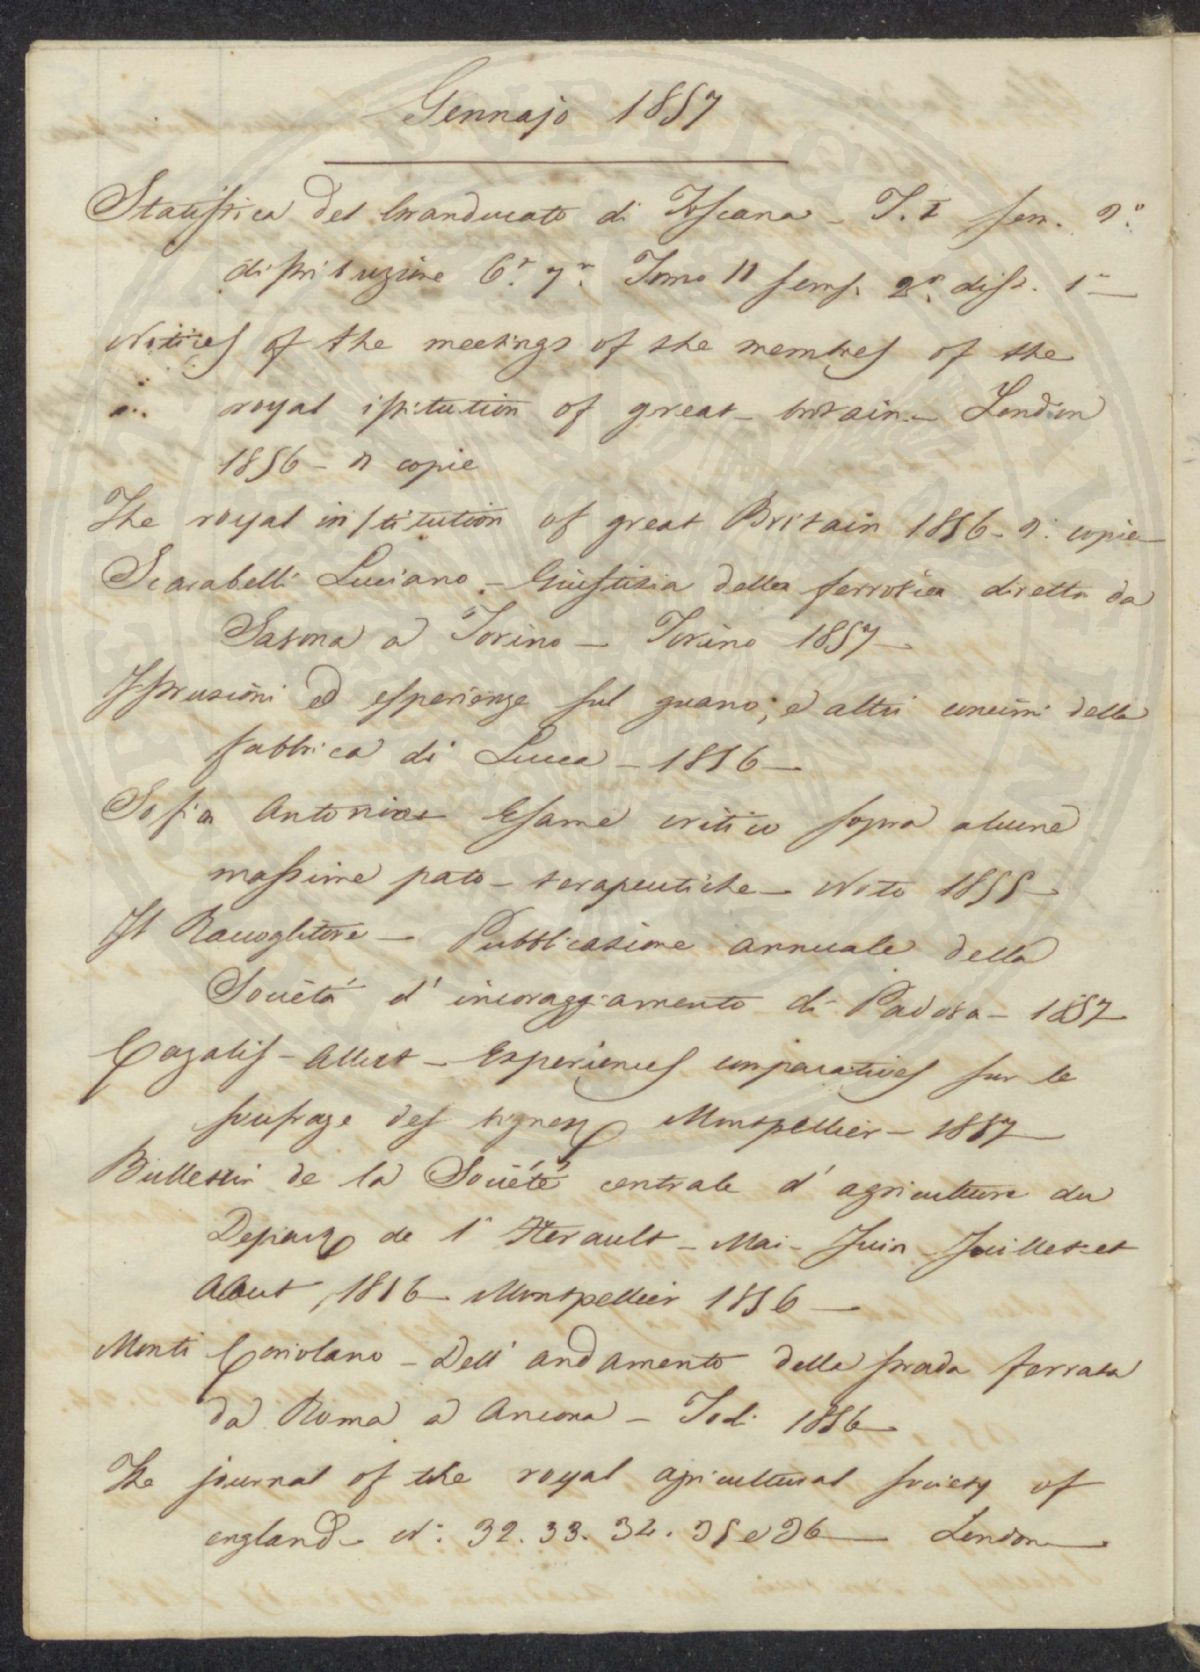 Gennajo 1857
Statistica del Granducato di Toscana - T. I sem. 2.°
distribuzione 6.a 7.a Tomo II sem. 2.° dist. 1.a
Notices of the meetings of the membres of the
royal istitution of great - britain - London
1856 - 2 copie
The royal institution of great Britain 1856 - 2. copie
Scarabelli Luciano - Giustizia della ferrovia diretta da
Savona a Torino - Torino 1857
Istruzioni ed esperienze sul guano, e altri concimi della
fabbrica di Lucca - 1856 -
Sofia Antonino Esame critico sopra alcune
massime pato - terapeutiche - Noto 1855 -
Il Raccoglitore - Pubblicazione annuale della
Società d' incoraggiamento di Padova - 1857
Cazalis - Allut - Experiences comparatives sur le
soufrage des vignes Montpellier - 1857 -
Bulletin de la Société centrale d' agriculture du
Depart de l' Herault - Mai - Juin Juillet et
Aout, 1856 - Montpellier 1856 -
Monti Coriolano - Dell' andamento della strada ferrata
da Roma a Ancona - Todi 1856 -
The journal of the royal agricultural society of
england - N: 32. 33. 34. 35 e 36 - London -